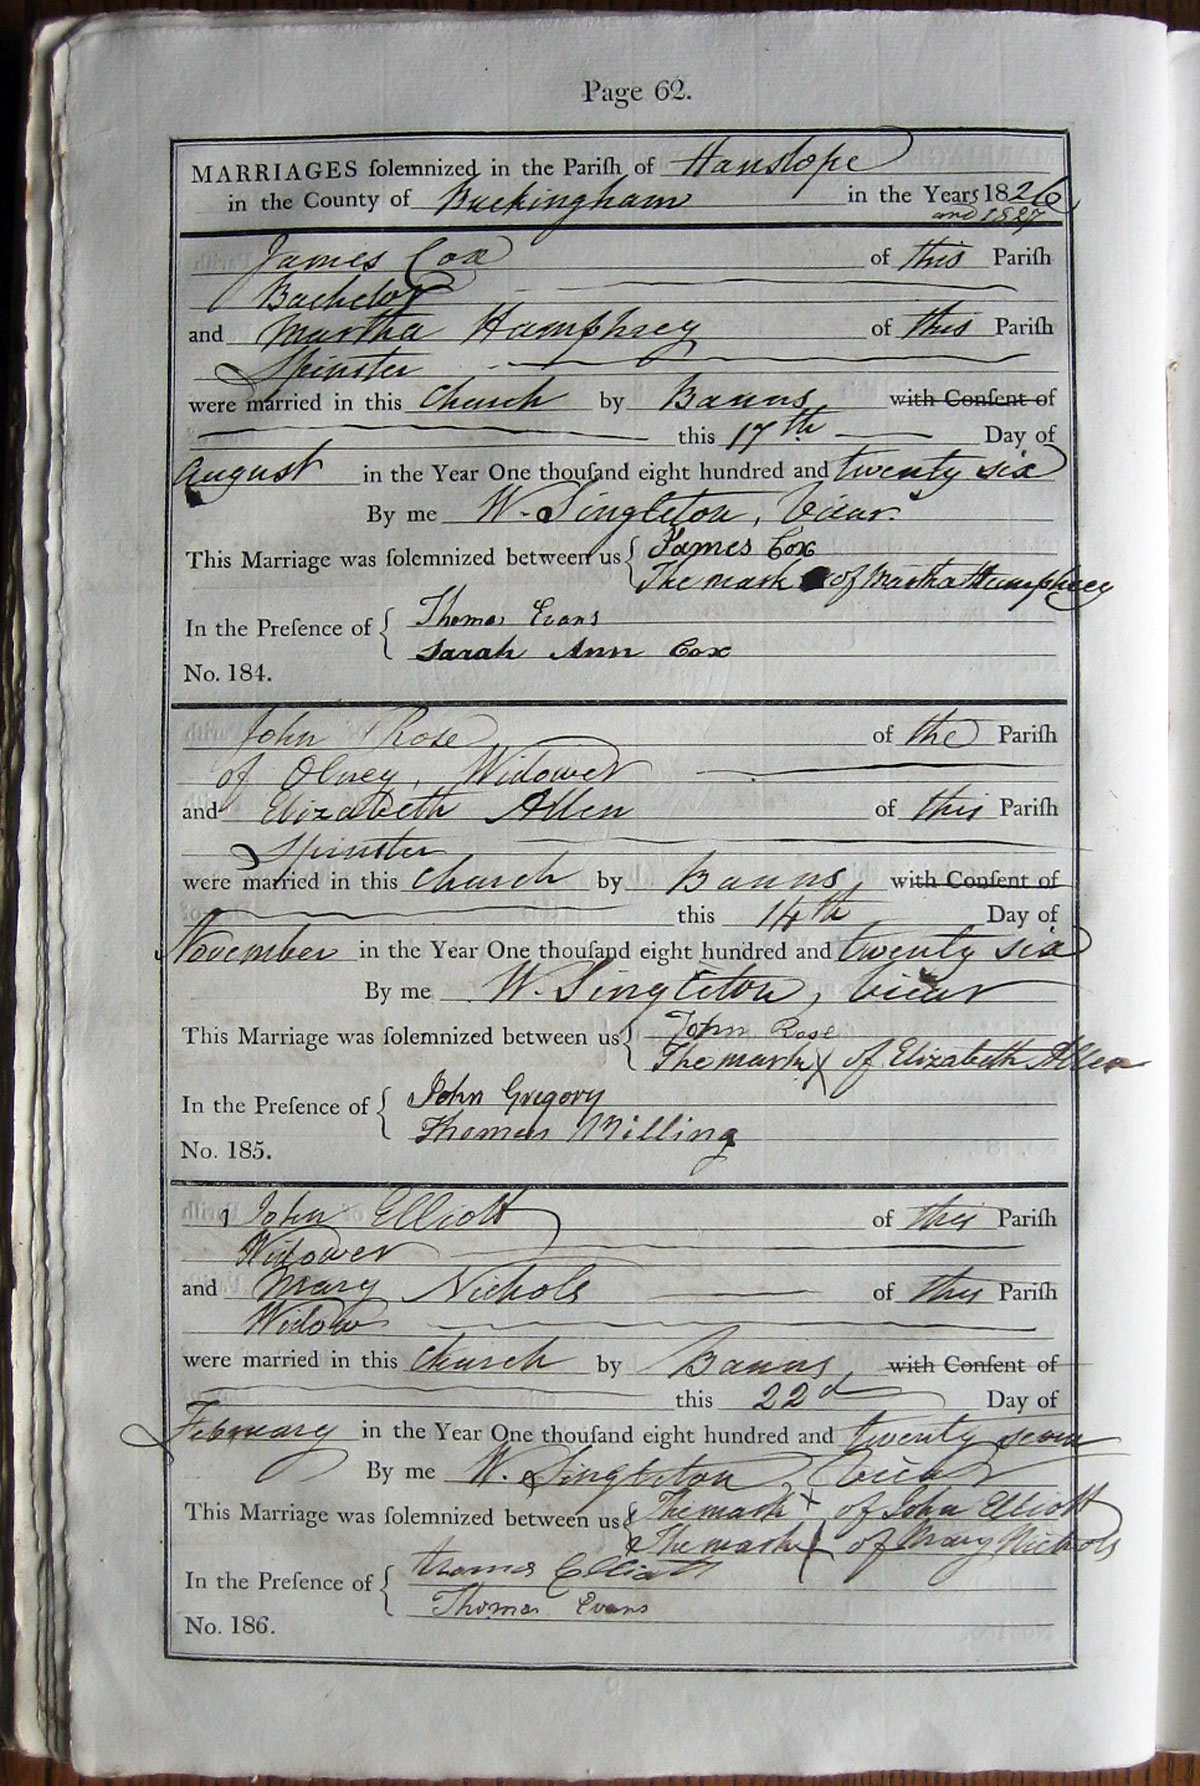 Page 62.
MARRIAGES ſolemnized in the Pariſh of Hanslope
in the County of Buckingham in the Years 1826
and 1827
James Cox of this Pariſh
Bachelor
and Martha Humphrey of this Pariſh
Spinster
were married in this Church by Banns with Conſent of
this 17th Day of
August in the Year One thouſand eight hundred and twenty six
By me W. Singleton, Vicar.
This Marriage was ſolemnized between us { James Cox
The mark of Martha Humphrey
In the Preſence of { Thomas Evans
Sarah Ann Cox
No. 184.
John Rose of the Pariſh
of Olney, Widower
and Elizabeth Allen of this Pariſh
Spinster
were married in this Church by Banns, with Conſent of
this 14th Day of
November in the Year One thouſand eight hundred and twenty six
By me W. Singleton, Vicar
This Marriage was ſolemnized between us { John Rose
The mark X of Elizabeth Allen
In the Preſence of { John Gregory
Thomas Milling
No. 185.
John Elliott of this Pariſh
Widower
and Mary Nichols of this Pariſh
Widow
were married in this Church by Banns, with Conſent of
this 22d Day of
February in the Year One thouſand eight hundred and twenty seven
By me W. Singleton, Vicar
This Marriage was ſolemnized between us { The mark X of John Elliott
The mark X of Mary Nichols
In the Preſence of { Thomas Elliott
Thomas Evans
No. 186.